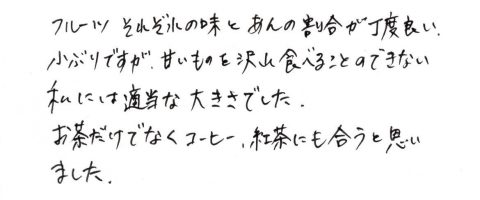 フルーツ それぞれの味とあんの割合が丁度良い.
小ぶりですが、甘いものを沢山食べることのできない
私には適当な大きさでした.
お茶だけでなくコーヒー、紅茶にも合うと思い
ました.